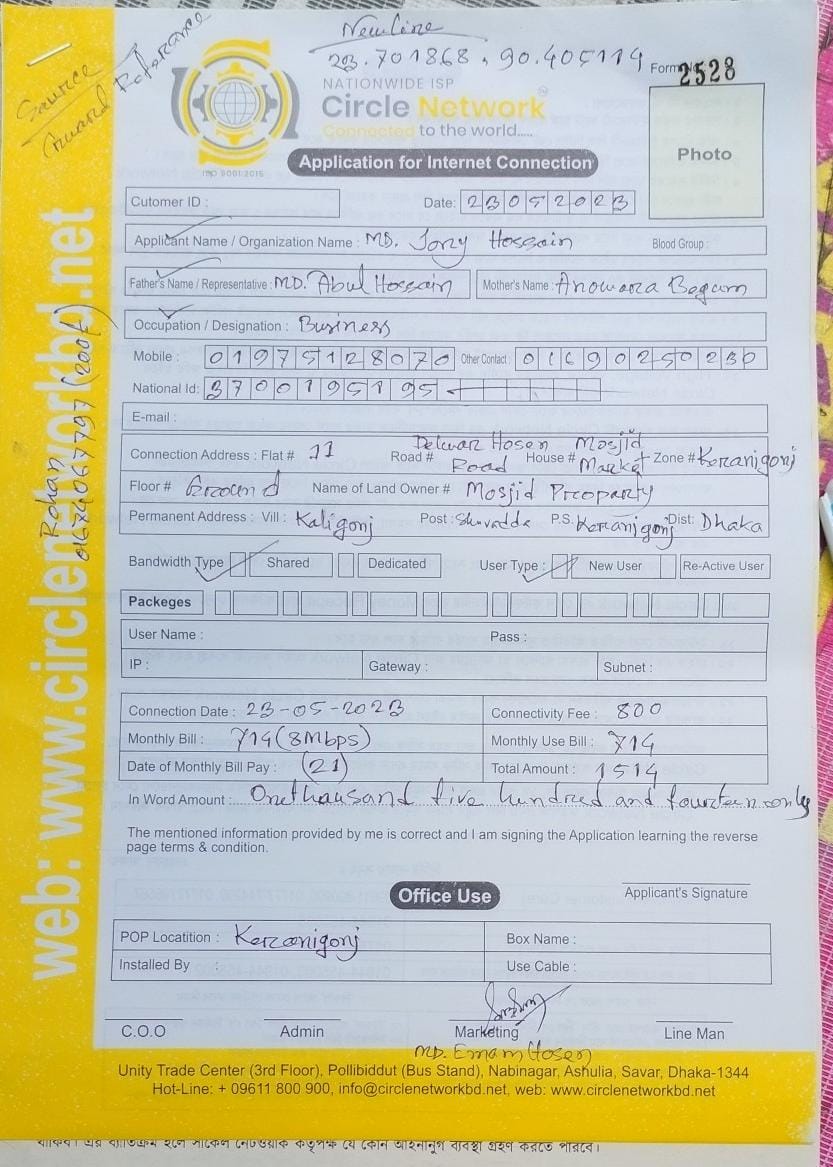 New line
23.701868, 90.405114
Source
Award Reference
Form No 2528
NATIONWIDE ISP
Circle Network
Connected to the world.....
ISO 9001:2015
Application for Internet Connection
Photo
Cutomer ID :
Date: 23052023
Applicant Name / Organization Name : MD. Jony Hossain Blood Group :
Father's Name / Representative : MD. Abul Hossain Mother's Name : Anowara Begum
Occupation / Designation : Business
Mobile : 01975128070 Other Contact : 01690250230
National Id: 3700195195
E-mail :
Connection Address : Flat # 11 Road # Delwar Hosen Road House # Mosjid Market Zone # Keranigonj
Floor # Ground Name of Land Owner # Mosjid Proparty
Permanent Address : Vill : Kaligonj Post : Shuvadda P.S. Keranigonj Dist: Dhaka
Bandwidth Type Shared Dedicated User Type : New User Re-Active User
Packeges
User Name : Pass :
IP : Gateway : Subnet :
Connection Date : 23-05-2023 Connectivity Fee : 800
Monthly Bill : 714 (8Mbps) Monthly Use Bill : 714
Date of Monthly Bill Pay : (21) Total Amount : 1514
In Word Amount : One thausand five hundred and fourteen only
The mentioned information provided by me is correct and I am signing the Application learning the reverse
page terms & condition.
Applicant's Signature
Office Use
POP Locatition : Keranigonj Box Name :
Installed By : Use Cable :
C.O.O Admin Marketing Line Man
MD. Emam Hosen
Unity Trade Center (3rd Floor), Pollibiddut (Bus Stand), Nabinagar, Ashulia, Savar, Dhaka-1344
Hot-Line: + 09611 800 900, info@circlenetworkbd.net, web: www.circlenetworkbd.net
web: www.circlenetworkbd.net
Rohan